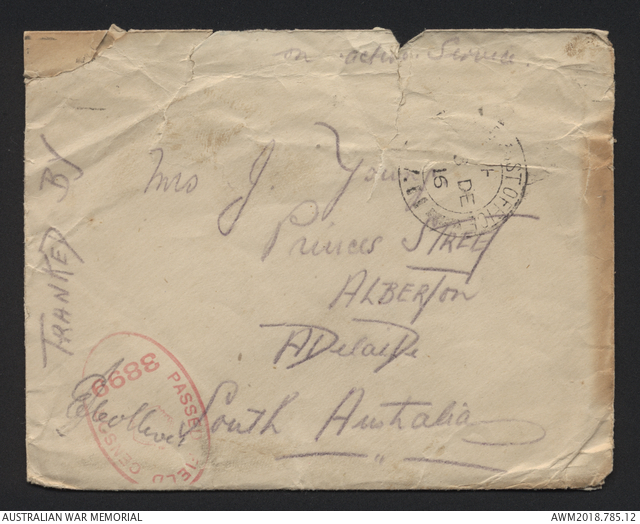 on active Service.
Mrs J Young
Princes STREET
ALBERTON
ADelaiDe.
South Australia
FRANKED BY
PASSED FIELD CENSOR
3899
ST OFFICE
DE
16
AUSTRALIAN WAR MEMORIAL
AWM2018.785.12